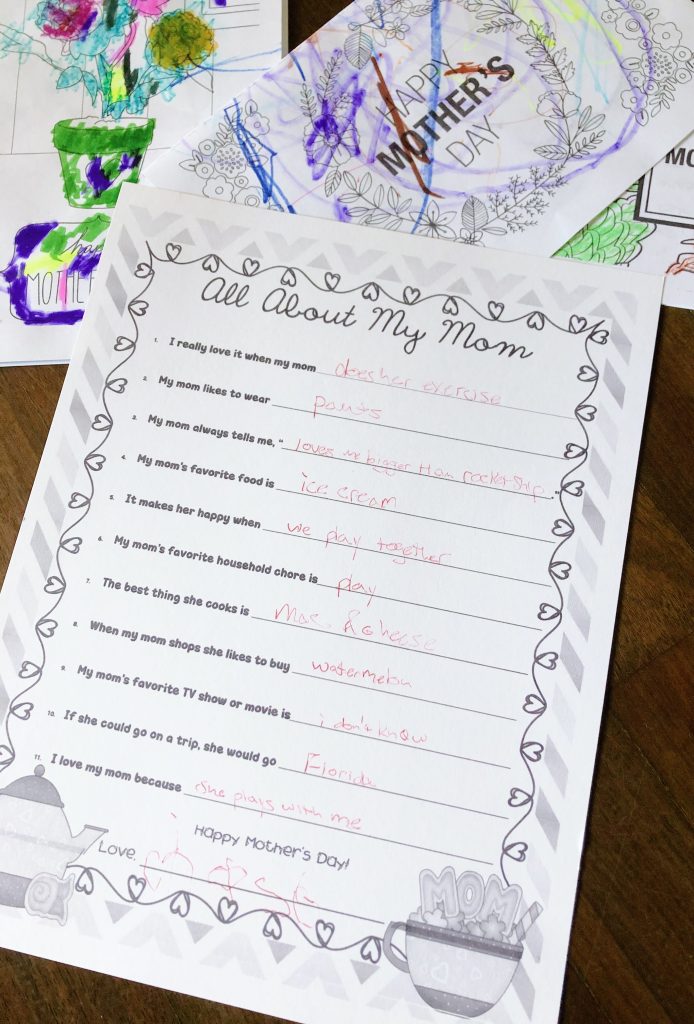 HAPPY
MOTHER'S
DAY
MOTHE
MO
All About My Mom
1. I really love it when my mom does her exercise
2. My mom likes to wear pants
3. My mom always tells me, "loves me bigger than rocketship."
4. My mom's favorite food is ice cream
5. It makes her happy when we play together
6. My mom's favorite household chore is play
7. The best thing she cooks is Mac. & cheese
8. When my mom shops she likes to buy watermelon
9. My mom's favorite TV show or movie is i don't know
10. If she could go on a trip, she would go Florida
11. I love my mom because she plays with me
Happy Mother's Day!
Love,
MOM